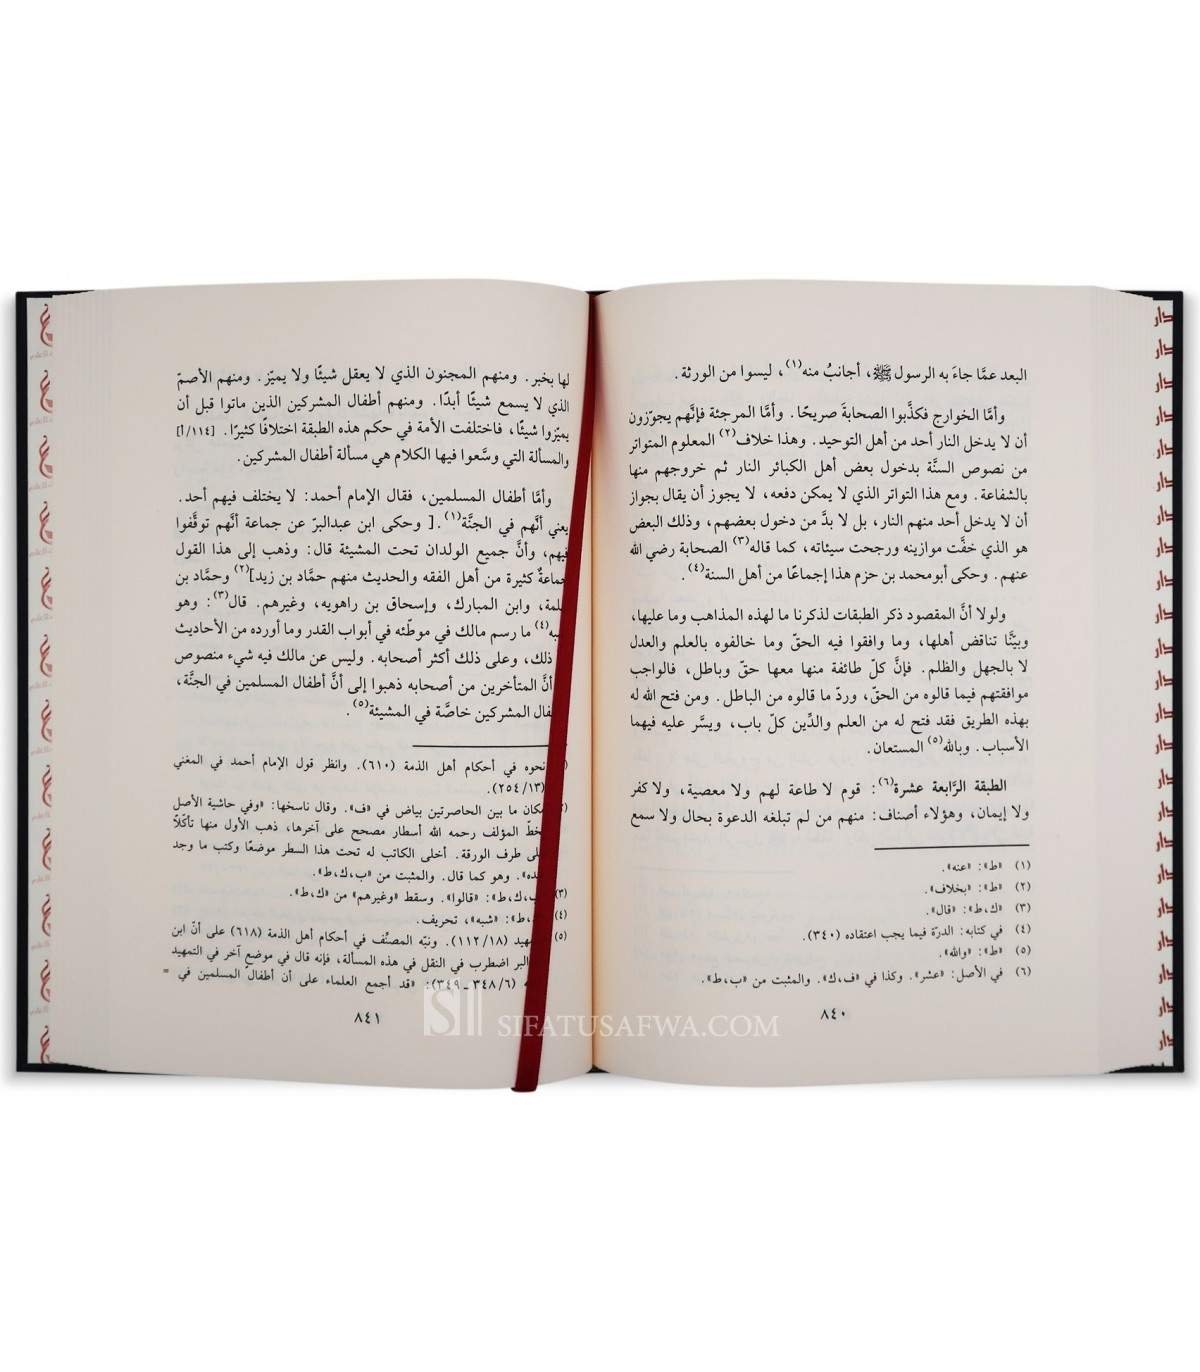 البعد عمَّا جاءَ به الرسول ﷺ، أجانبُ منه(١)، ليسوا من الورثة.
وأمَّا الخوارج فكذَّبوا الصحابةَ صريحًا. وأمَّا المرجئة فإنَّهم يجوّزون
أن لا يدخل النار أحد من أهل التوحيد. وهذا خلاف(٢) المعلوم المتواتر
من نصوص السنَّة بدخول بعض أهل الكبائر النار ثم خروجهم منها
بالشفاعة. ومع هذا التواتر الذي لا يمكن دفعه، لا يجوز أن يقال بجواز
أن لا يدخل أحد منهم النار، بل لا بدَّ من دخول بعضهم، وذلك البعض
هو الذي خفَّت موازينه ورجحت سيئاته، كما قاله(٣) الصحابة رضي الله
عنهم. وحكى أبومحمد بن حزم هذا إجماعًا من أهل السنة(٤).
ولولا أنَّ المقصود ذكر الطبقات لذكرنا ما لهذه المذاهب وما عليها،
وبيَّنَّا تناقض أهلها، وما وافقوا فيه الحقّ وما خالفوه بالعلم والعدل
لا بالجهل والظلم. فإنَّ كلّ طائفة منها معها حقّ وباطل، فالواجب
موافقتهم فيما قالوه من الحقّ، وردّ ما قالوه من الباطل. ومن فتح الله له
بهذه الطريق فقد فتح له من العلم والدِّين كلّ باب، ويسَّر عليه فيهما
الأسباب. وبالله(٥) المستعان.
الطبقة الرَّابعة عشرة(٦): قوم لا طاعة لهم ولا معصية، ولا كفر
ولا إيمان، وهؤلاء أصناف: منهم من لم تبلغه الدعوة بحال ولا سمع
(١) «ط»: «عنه».
(٢) «ط»: «بخلاف».
(٣) «ك،ط»: «قال».
(٤) في كتابه: الدرّة فيما يجب اعتقاده (٣٤٠).
(٥) «ط»: «والله».
(٦) في الأصل: «عشر». وكذا في «ف،ك». والمثبت من «ب،ط».
٨٤٠
لها بخبر. ومنهم المجنون الذي لا يعقل شيئًا ولا يميّز. ومنهم الأصمّ
الذي لا يسمع شيئًا أبدًا. ومنهم أطفال المشركين الذين ماتوا قبل أن
يميّزوا شيئًا، فاختلفت الأمة في حكم هذه الطبقة اختلافًا كثيرًا. [١١٤/أ]
والمسألة التي وسَّعوا فيها الكلام هي مسألة أطفال المشركين.
وأمَّا أطفال المسلمين، فقال الإمام أحمد: لا يختلف فيهم أحد.
يعني أنَّهم في الجنَّة(١). [وحكى ابن عبدالبرّ عن جماعة أنَّهم توقَّفوا
فيهم، وأنَّ جميع الولدان تحت المشيئة قال: وذهب إلى هذا القول
جماعةٌ كثيرة من أهل الفقه والحديث منهم حمَّاد بن زيد](٢) وحمَّاد بن
لمة، وابن المبارك، وإسحاق بن راهويه، وغيرهم. قال(٣): وهو
به(٤) ما رسم مالك في موطّئه في أبواب القدر وما أورده من الأحاديث
ذلك، وعلى ذلك أكثر أصحابه. وليس عن مالك فيه شيء منصوص
أنَّ المتأخرين من أصحابه ذهبوا إلى أنَّ أطفال المسلمين في الجنَّة،
فال المشركين خاصَّة في المشيئة(٥).
نحوه في أحكام أهل الذمة (٦١٠). وانظر قول الإمام أحمد في المغني
(٢٥٤/١٣).
مكان ما بين الحاصرتين بياض في «ف». وقال ناسخها: «وفي حاشية الأصل
خطّ المؤلف رحمه الله أسطار مصحح على آخرها، ذهب الأول منها تأكّلًا
لى طرف الورقة. أخلى الكاتب له تحت هذا السطر موضعًا وكتب ما وجد
ده». وهو كما قال. والمثبت من «ب،ك،ط».
(٣) ب،ك،ط»: «قالوا». وسقط «وغيرهم» من «ك،ط».
(٤) ،ط»: «شبه»، تحريف.
(٥) هيد (١١٢/١٨). ونبّه المصنّف في أحكام أهل الذمة (٦١٨) على أنّ ابن
البر اضطرب في النقل في هذه المسألة، فإنه قال في موضع آخر في التمهيد
(٦/ ٣٤٨ ـ ٣٤٩): «قد أجمع العلماء على أن أطفال المسلمين في =
٨٤١
SIFATUSAFWA.COM
دار